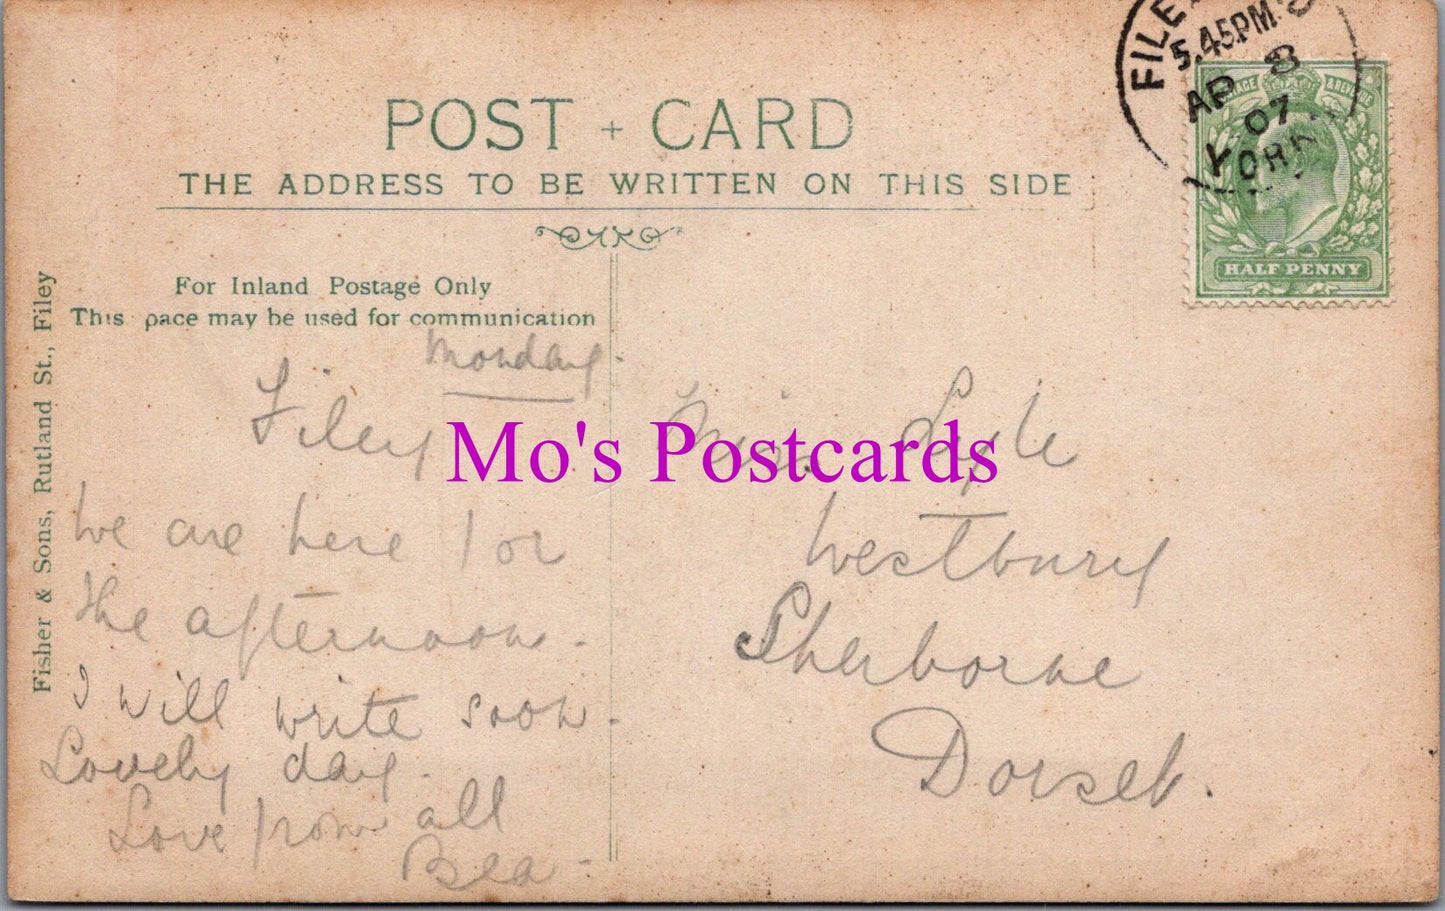 POST + CARD
THE ADDRESS TO BE WRITTEN ON THIS SIDE
For Inland Postage Only
This pace may be used for communication
Fisher & Sons, Rutland St., Filey
FILEY
5.45PM
AP 8
07
YORK
& REVENUE
HALF PENNY
Monday.
Filey
We are here for
the afternoon.
I will write soon.
Lovely day.
Love from all
Bea
Miss Lyle
Westbury
Sherborne
Dorset.
Mo's Postcards